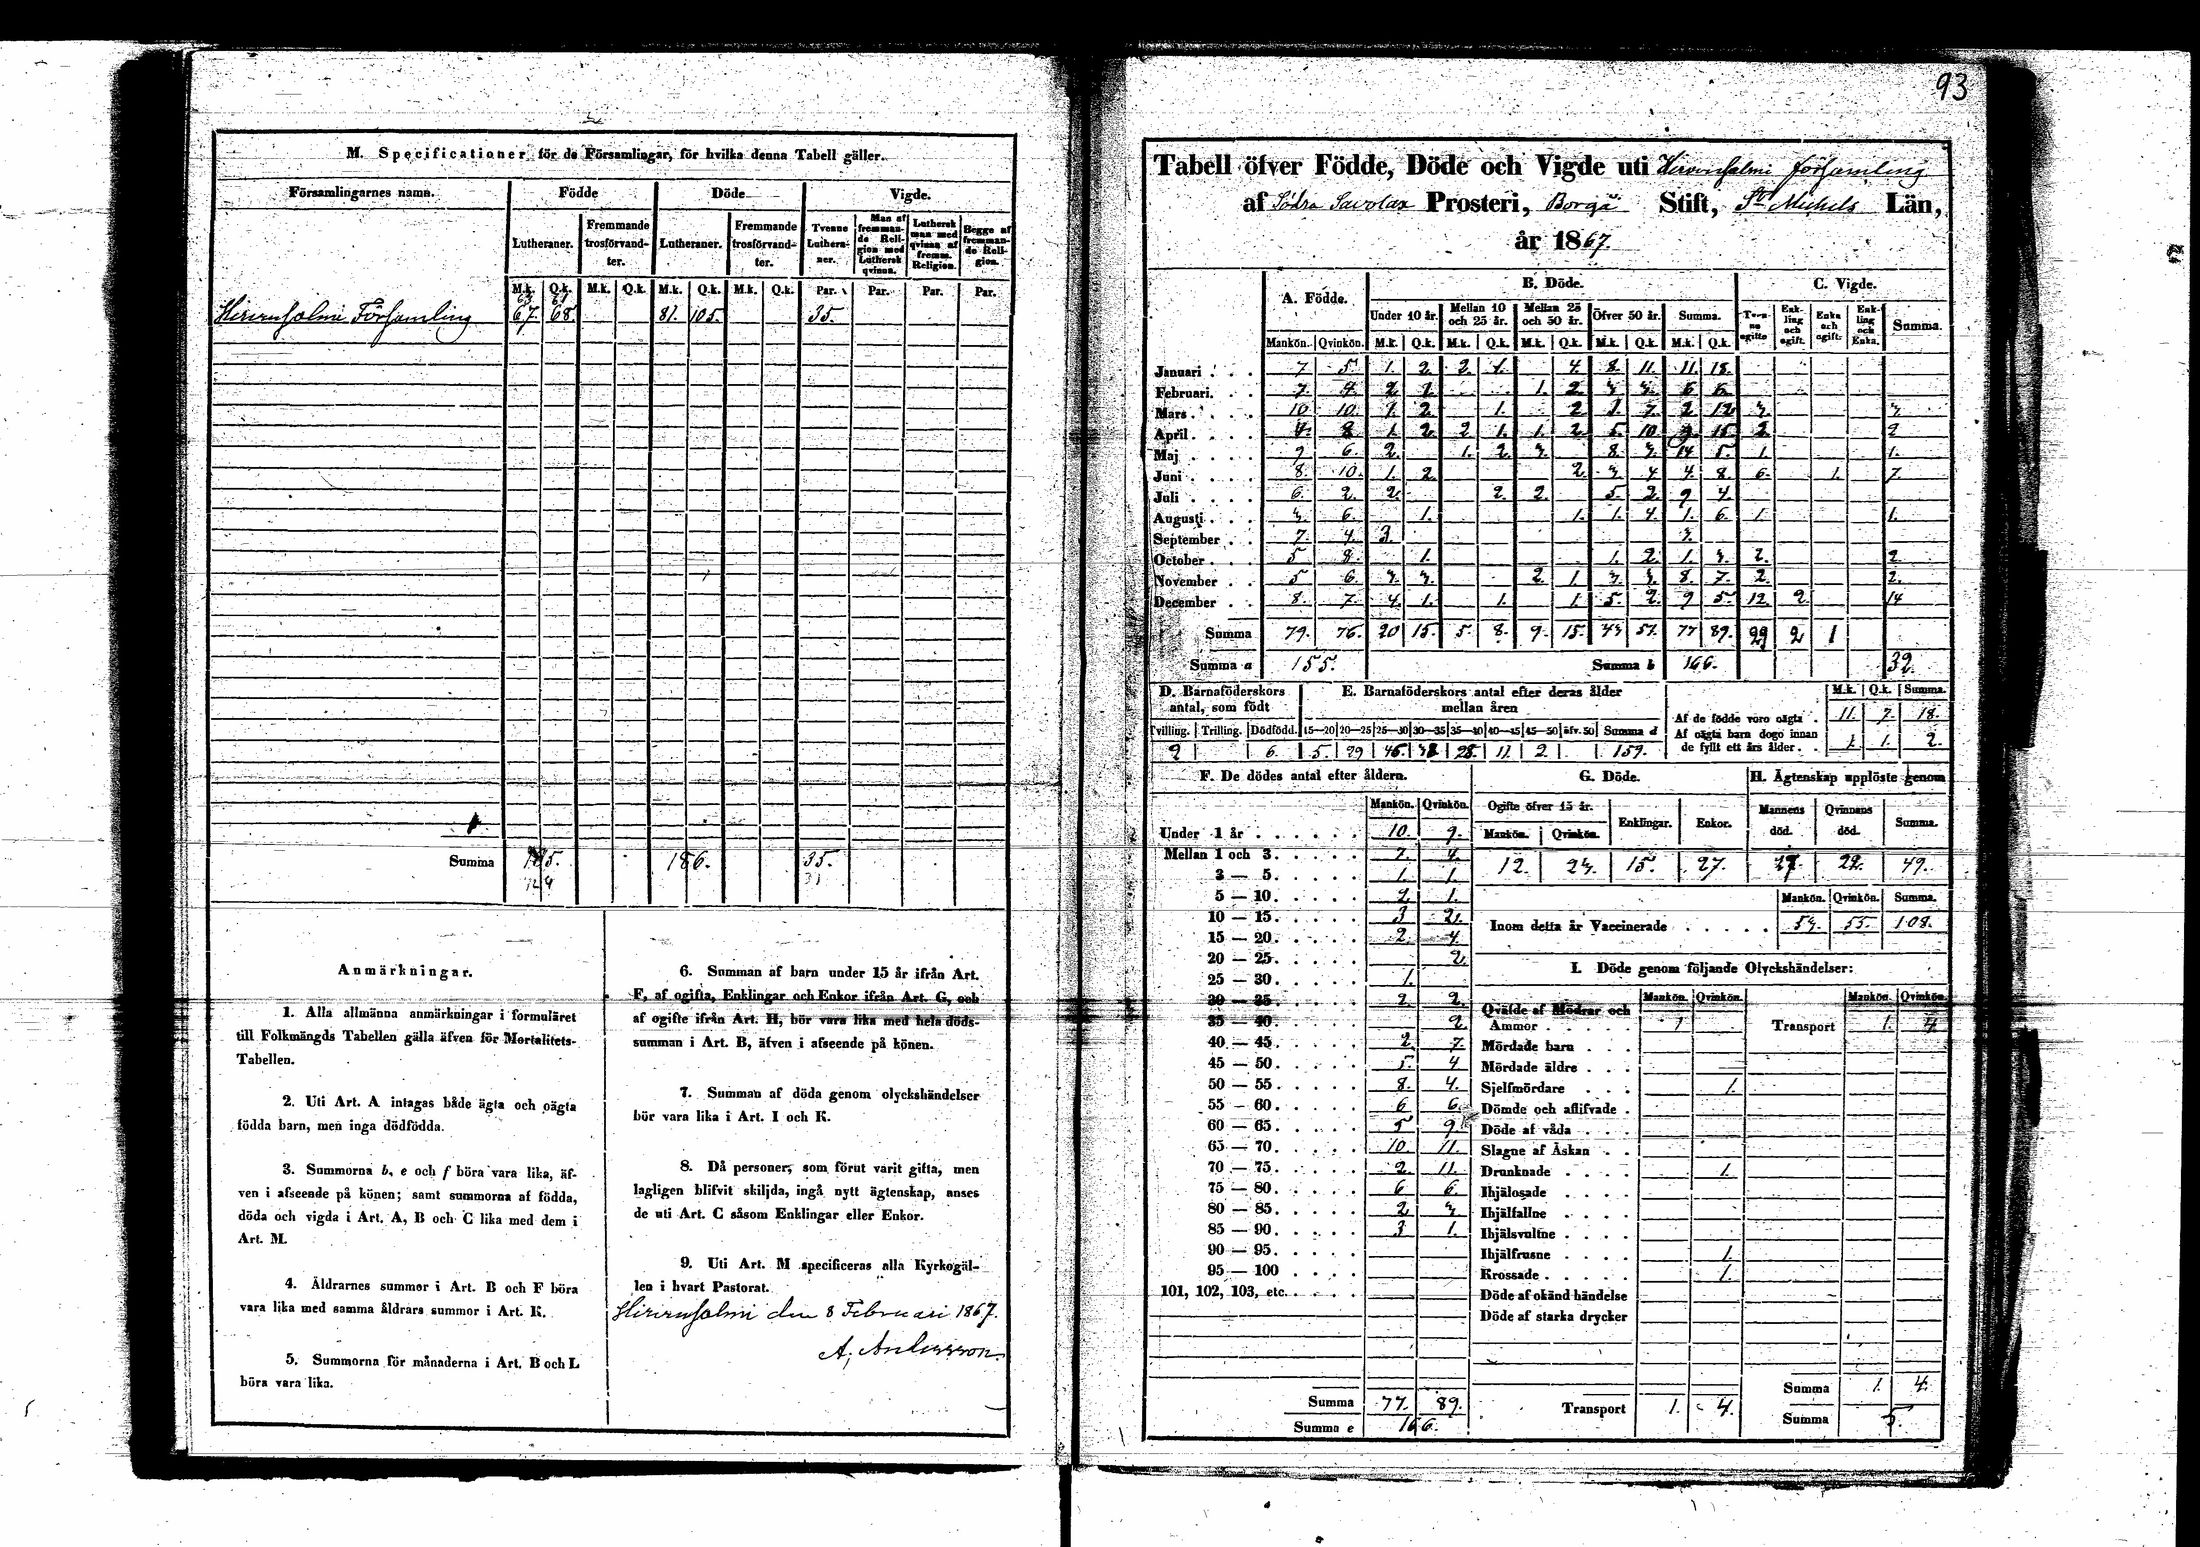 93
M. Specificationer för de Församlingar, för hvilka denna Tabell gäller.
Församlingarnes namn. Födde Döde Vigde.
Lutheraner. Fremmande trosförvandter. Lutheraner. Fremmande trosförvandter. Tvenne Lutheraner. Man af fremmande Religion med Luthersk qvinna. Luthersk man med qvinna af fremm. Religion. Begge af fremmande Religion.
M.k. Q.k. M.k. Q.k. M.k. Q.k. M.k. Q.k. Par. Par. Par. Par.
63 61
Hirvensalmi Församling 67. 68. 81. 105. 35.
Summa 135. 186. 35.
124 31
Anmärkningar.
1. Alla allmänna anmärkningar i formuläret
till Folkmängds Tabellen gälla äfven för Mortalitets-
Tabellen.
2. Uti Art. A intagas både ägta och oägta
födda barn, men inga dödfödda.
3. Summorna b, e och f böra vara lika, äf-
ven i afseende på könen; samt summorna af födda,
döda och vigda i Art. A, B och C lika med dem i
Art. M.
4. Åldrarnes summor i Art. B och F böra
vara lika med samma åldrars summor i Art. K.
5. Summorna för månaderna i Art. B och L
böra vara lika.
6. Summan af barn under 15 år ifrån Art.
F, af ogifta, Enklingar och Enkor ifrån Art. G, och
af ogifte ifrån Art. H, bör vara lika med hela döds-
summan i Art. B, äfven i afseende på könen.
7. Summan af döda genom olyckshändelser
bör vara lika i Art. I och K.
8. Då personer, som förut varit gifta, men
lagligen blifvit skiljda, ingå nytt ägtenskap, anses
de uti Art. C såsom Enklingar eller Enkor.
9. Uti Art. M specificeras alla Kyrkogäl-
len i hvart Pastorat.
Hirvensalmi den 8 Februari 1867.
A. Andersson.
Tabell öfver Födde, Döde och Vigde uti Hirvensalmi församling
af Södra Savolax Prosteri, Borgå Stift, St Michels Län,
år 1867.
A. Födde. B. Döde. C. Vigde.
Under 10 år. Mellan 10 och 25 år. Mellan 25 och 50 år. Öfver 50 år. Summa. Tvenne ogifte Enkling och ogift. Enka och ogift. Enkling och Enka. Summa.
Mankön. Qvinkön. M.k. Q.k. M.k. Q.k. M.k. Q.k. M.k. Q.k. M.k. Q.k.
Januari 7 5. 1. 2. 2 1. 4. 8. 11. 11. 18.
Februari. 7. 4. 2 1. 1. 2 3. 3. 6 6.
Mars 10 10. 1. 2. 1. 2 1. 7. 2 12 3. 3.
April 4. 8. 1. 2 2 1. 1. 2 5. 10 9 15. 2. 2
Maj 9 6. 2. 1. 2 3. 8. 3. 14 5. 1. 1.
Juni 8. 10. 1. 2 2 3. 4 4. 8. 6. 1. 7.
Juli 6. 2. 2. 2. 2. 5. 2. 9 4.
Augusti 3. 6. 1. 1. 1. 4. 1. 6. 1. 1.
September 7. 4. 3 3.
October 5 8. 1. 1. 2. 1. 3. 2. 2.
November 5 6. 3. 3. 2. 1 3. 3. 8. 7. 2. 2.
December 8. 7. 4. 1. 1. 1. 5. 2. 9 5. 12. 2. 14
Summa 79. 76. 20 15. 5. 8. 9. 15. 43 51. 77 89. 29 2 1
Summa a 155. Summa b 166. 32.
D. Barnaföderskors antal, som födt E. Barnaföderskors antal efter deras ålder mellan åren M.k. Q.k. Summa.
Tvilling. Trilling. Dödfödd. 15—20 20—25 25—30 30—35 35—40 40—45 45—50 öfv. 50 Summa d
Af de födde voro oägta 11. 7. 18.
Af oägta barn dogo innan de fyllt ett års ålder 1. 1. 2.
2 6. 5. 29 46. 38 28. 11. 2. 159.
F. De dödes antal efter åldern.
Mankön. Qvinkön.
Under 1 år 10. 9.
Mellan 1 och 3. 7. 4.
3 — 5. 1. 1.
5 — 10. 2. 1.
10 — 15. 3 2.
15 — 20. 2. 4
20 — 25. 2.
25 — 30. 1.
30 — 35. 2 2.
35 — 40. 2.
40 — 45. 2. 7.
45 — 50. 5. 4
50 — 55. 8. 4.
55 — 60. 6 6.
60 — 65. 5 9.
65 — 70. 10. 11.
70 — 75. 2. 11.
75 — 80. 6 6.
80 — 85. 2 3.
85 — 90. 3 1.
90 — 95.
95 — 100
101, 102, 103, etc.
Summa 77. 89.
Summa e 166.
G. Döde. H. Ägtenskap upplöste genom
Ogifte öfver 15 år. Enklingar. Enkor. Mannens död. Qvinnans död. Summa.
Mankön. Qvinkön.
12. 23. 15. 27. 27. 22. 49.
Mankön. Qvinkön. Summa.
Inom detta år Vaccinerade 53. 55. 108.
I. Döde genom följande Olyckshändelser:
Mankön. Qvinkön. Mankön. Qvinkön.
Qväfde af Mödrar och
Ammor 1 Transport 1. 4.
Mördade barn
Mördade äldre
Sjelfmördare 1.
Dömde och aflifvade
Döde af våda
Slagne af Åskan
Drunknade 1.
Ihjälosade
Ihjälfallne
Ihjälsvultne
Ihjälfrusne 1.
Krossade 1.
Döde af okänd händelse
Döde af starka drycker
Summa 1. 4.
Transport 1. 4. Summa 5.